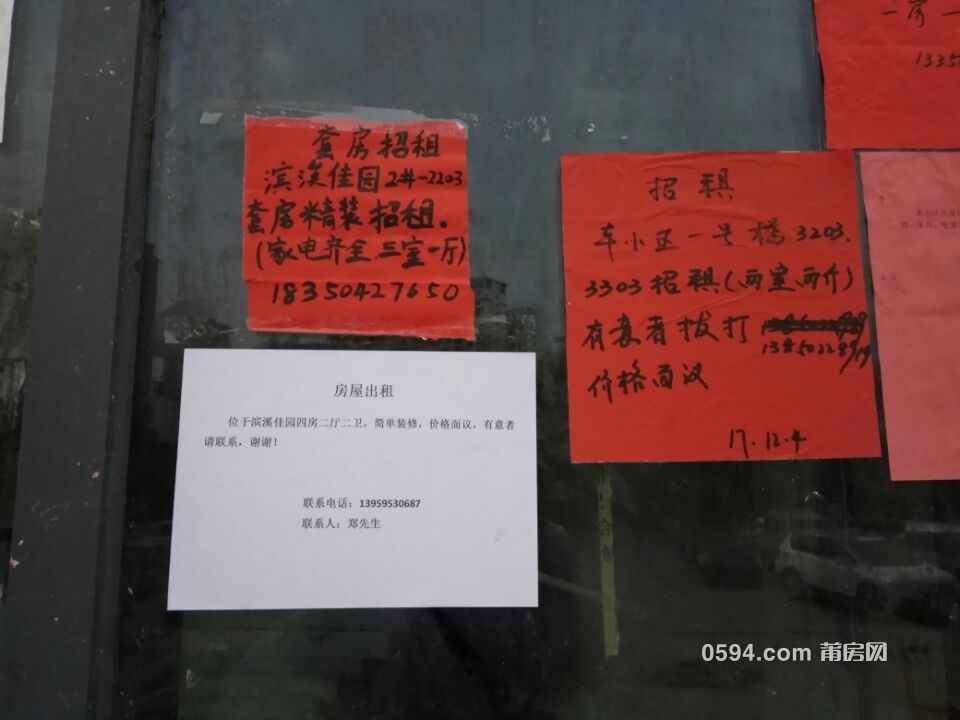 套房招租
滨溪佳园2#-2203
套房精装招租.
(家电齐全.三室一厅)
18350427650
房屋出租
位于滨溪佳园四房二厅二卫,简单装修,价格面议,有意者
请联系,谢谢!
联系电话:13959530687
联系人:郑先生
招租
本小区一号楼3203.
3303招租(两室两厅)
有意者拨打
价格面议
17.12.4
二房一
1335
0594.com 莆房网